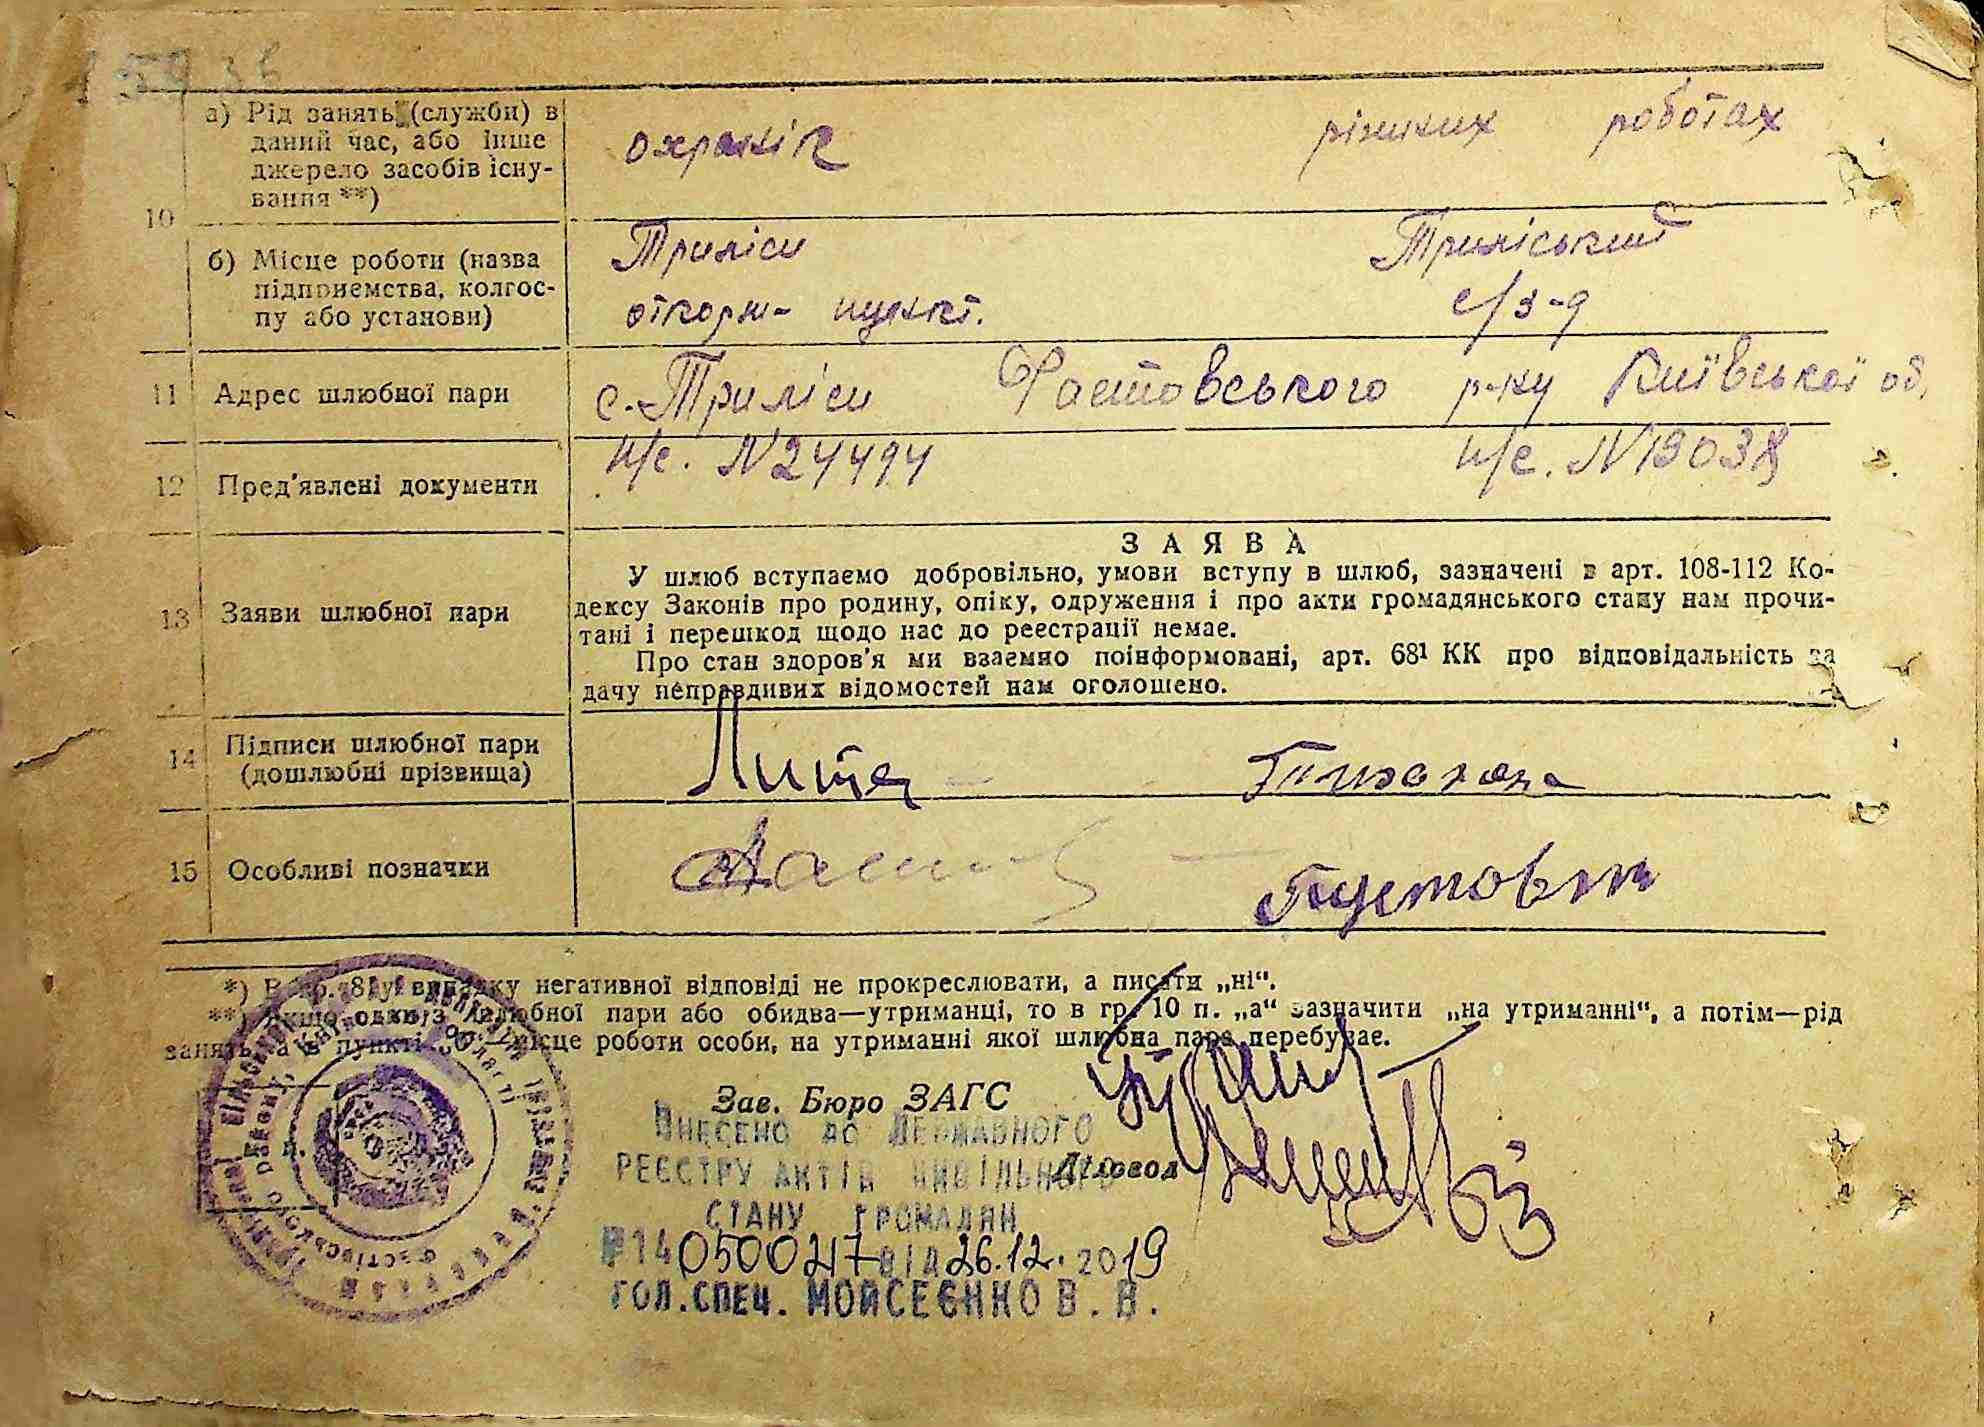 а) Рід занять (служби) в
даний час, або інше
джерело засобів існу-
вання **)
охранік
різних роботах
10
б) Місце роботи (назва
підприємства, колгос-
пу або установи)
Триліси
откорм- пункт.
Триліський
с/з-д
11 Адрес шлюбної пари
с. Триліси Фастовського р-ну Київської об.
12 Пред'явлені документи
п/с. N24494
п/с. N19038
13 Заяви шлюбної пари
ЗАЯВА
У шлюб вступаємо добровільно, умови вступу в шлюб, зазначені в арт. 108-112 Ко-
дексу Законів про родину, опіку, одруження і про акти громадянського стану нам прочи-
тані і перешкод щодо нас до реєстрації немає.
Про стан здоров'я ми взаємно поінформовані, арт. 68¹ КК про відповідальність за
дачу неправдивих відомостей нам оголошено.
14 Підписи шлюбної пари
(дошлюбні прізвища)
15 Особливі позначки
*) В гр. 8 у випадку негативної відповіді не прокреслювати, а писати „ні“.
**) Якщо один з шлюбної пари або обидва—утриманці, то в гр. 10 п. „а“ зазначити „на утриманні“, а потім—рід
занять, а в пункті місце роботи особи, на утриманні якої шлюбна пара перебуває.
Зав. Бюро ЗАГС
Внесено до Державного
реєстру актів цивільного
Діловод
стану громадян
№140500217 від 26.12.2019
гол.спец. Мойсеєнко В.В.